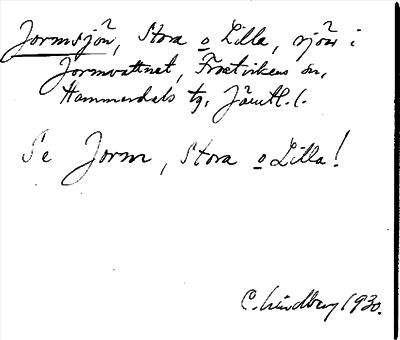 Jormsjön, Stora o Lilla, sjöar i
Jormvattnet, Frostvikens sn,
Hammerdals tg, Jämtl. l.
Se Jorm, Stora o Lilla!
C. Lindberg 1930.